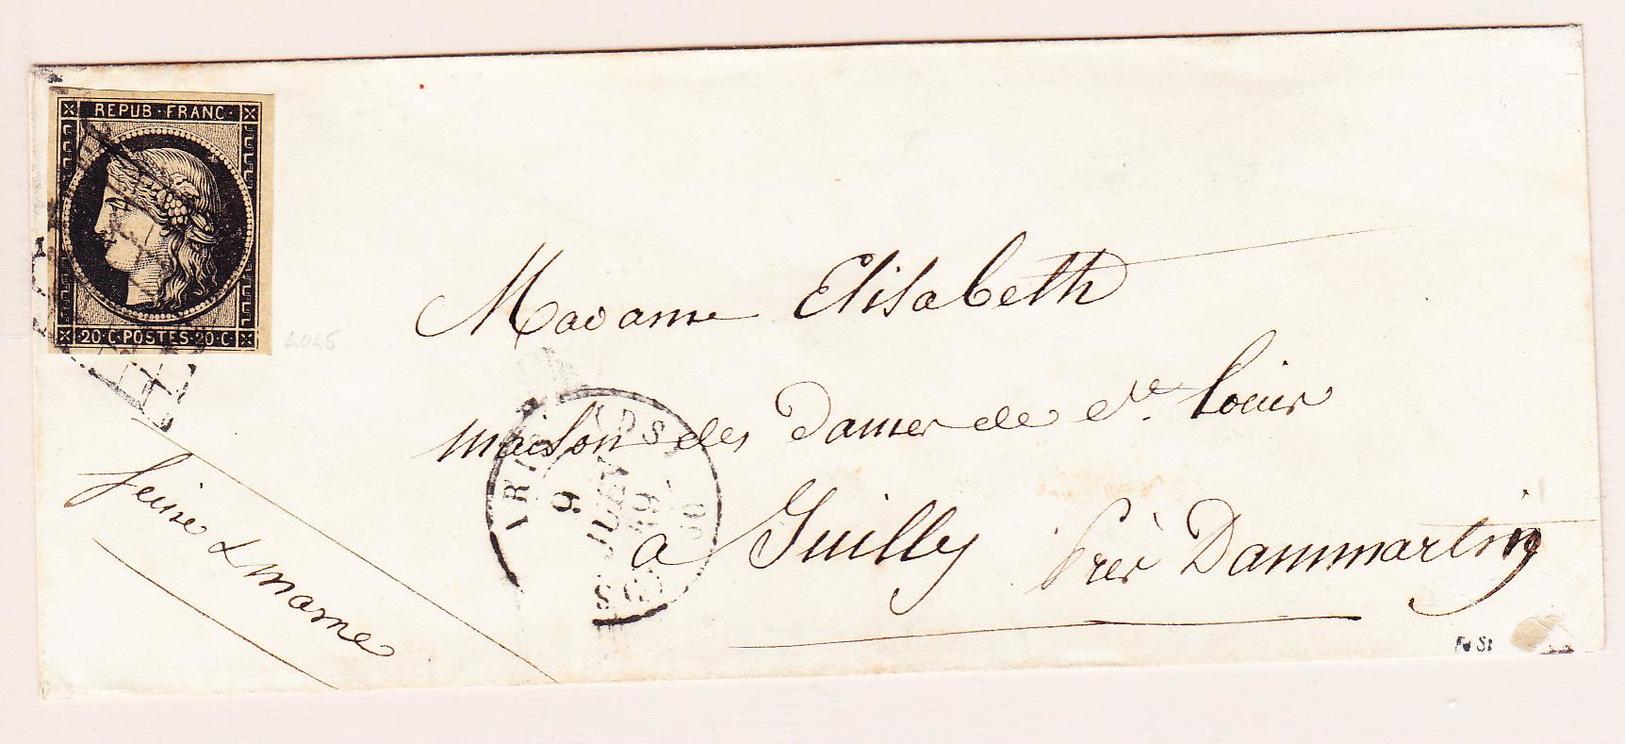 REPUB·FRANC·
·20·C·POSTES·20·C·
4045
Madame Elisabeth
maison des Dames de St. Louis
a Juilly près Dammartin
Seine & marne
9
49
60